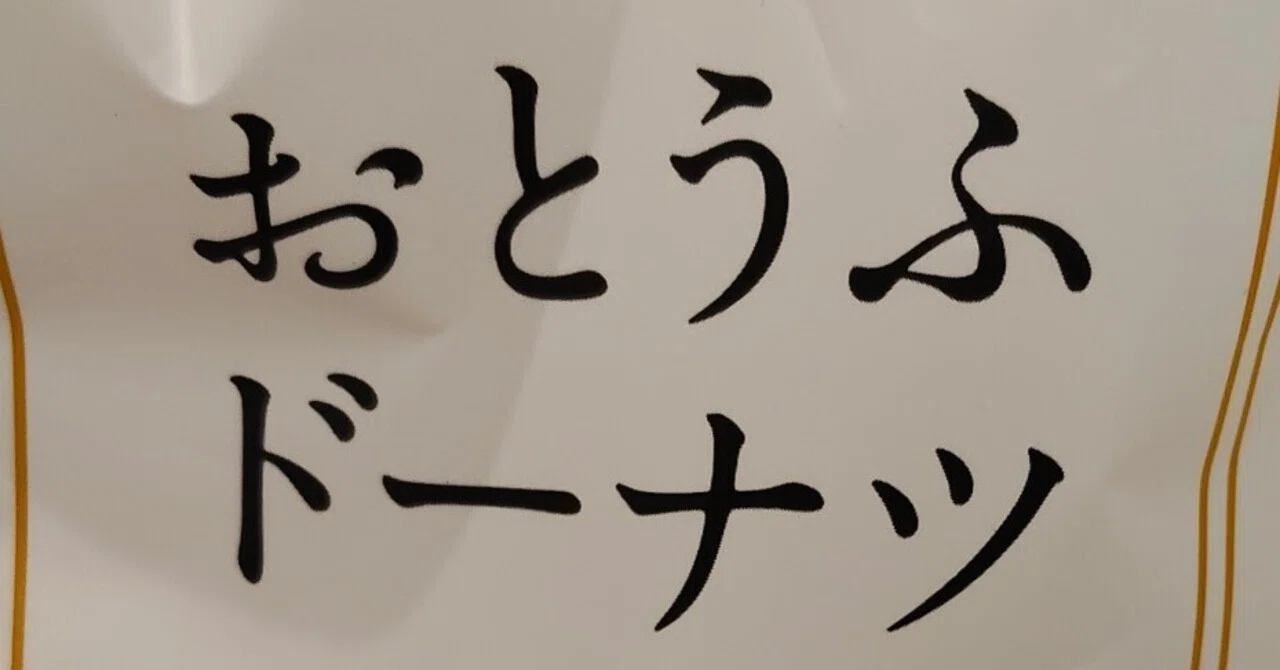 おとうふ
ドーナツ